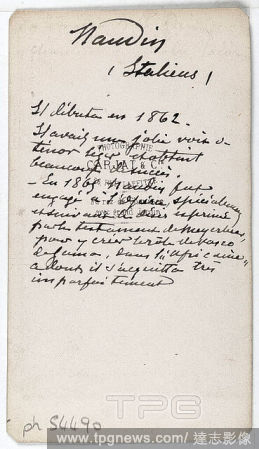 Naudin
(Italiens)
Il débuta en 1862.
Il avait une jolie voix de
ténor léger et obtint
beaucoup de succès.
PHOTOGRAPHIE
CARJAT & Cie
- En 1865 Naudin fut
engagé à l'opéra, spécialement
et suivant le désir exprimé
par le testament de Meyerbeer,
pour y créer le rôle de Vasco
de Gama, dans "l'africaine"
dont il s'acquitta très
imparfaitement
ph 54490
TPG
www.tpgnews.com / 達志影像